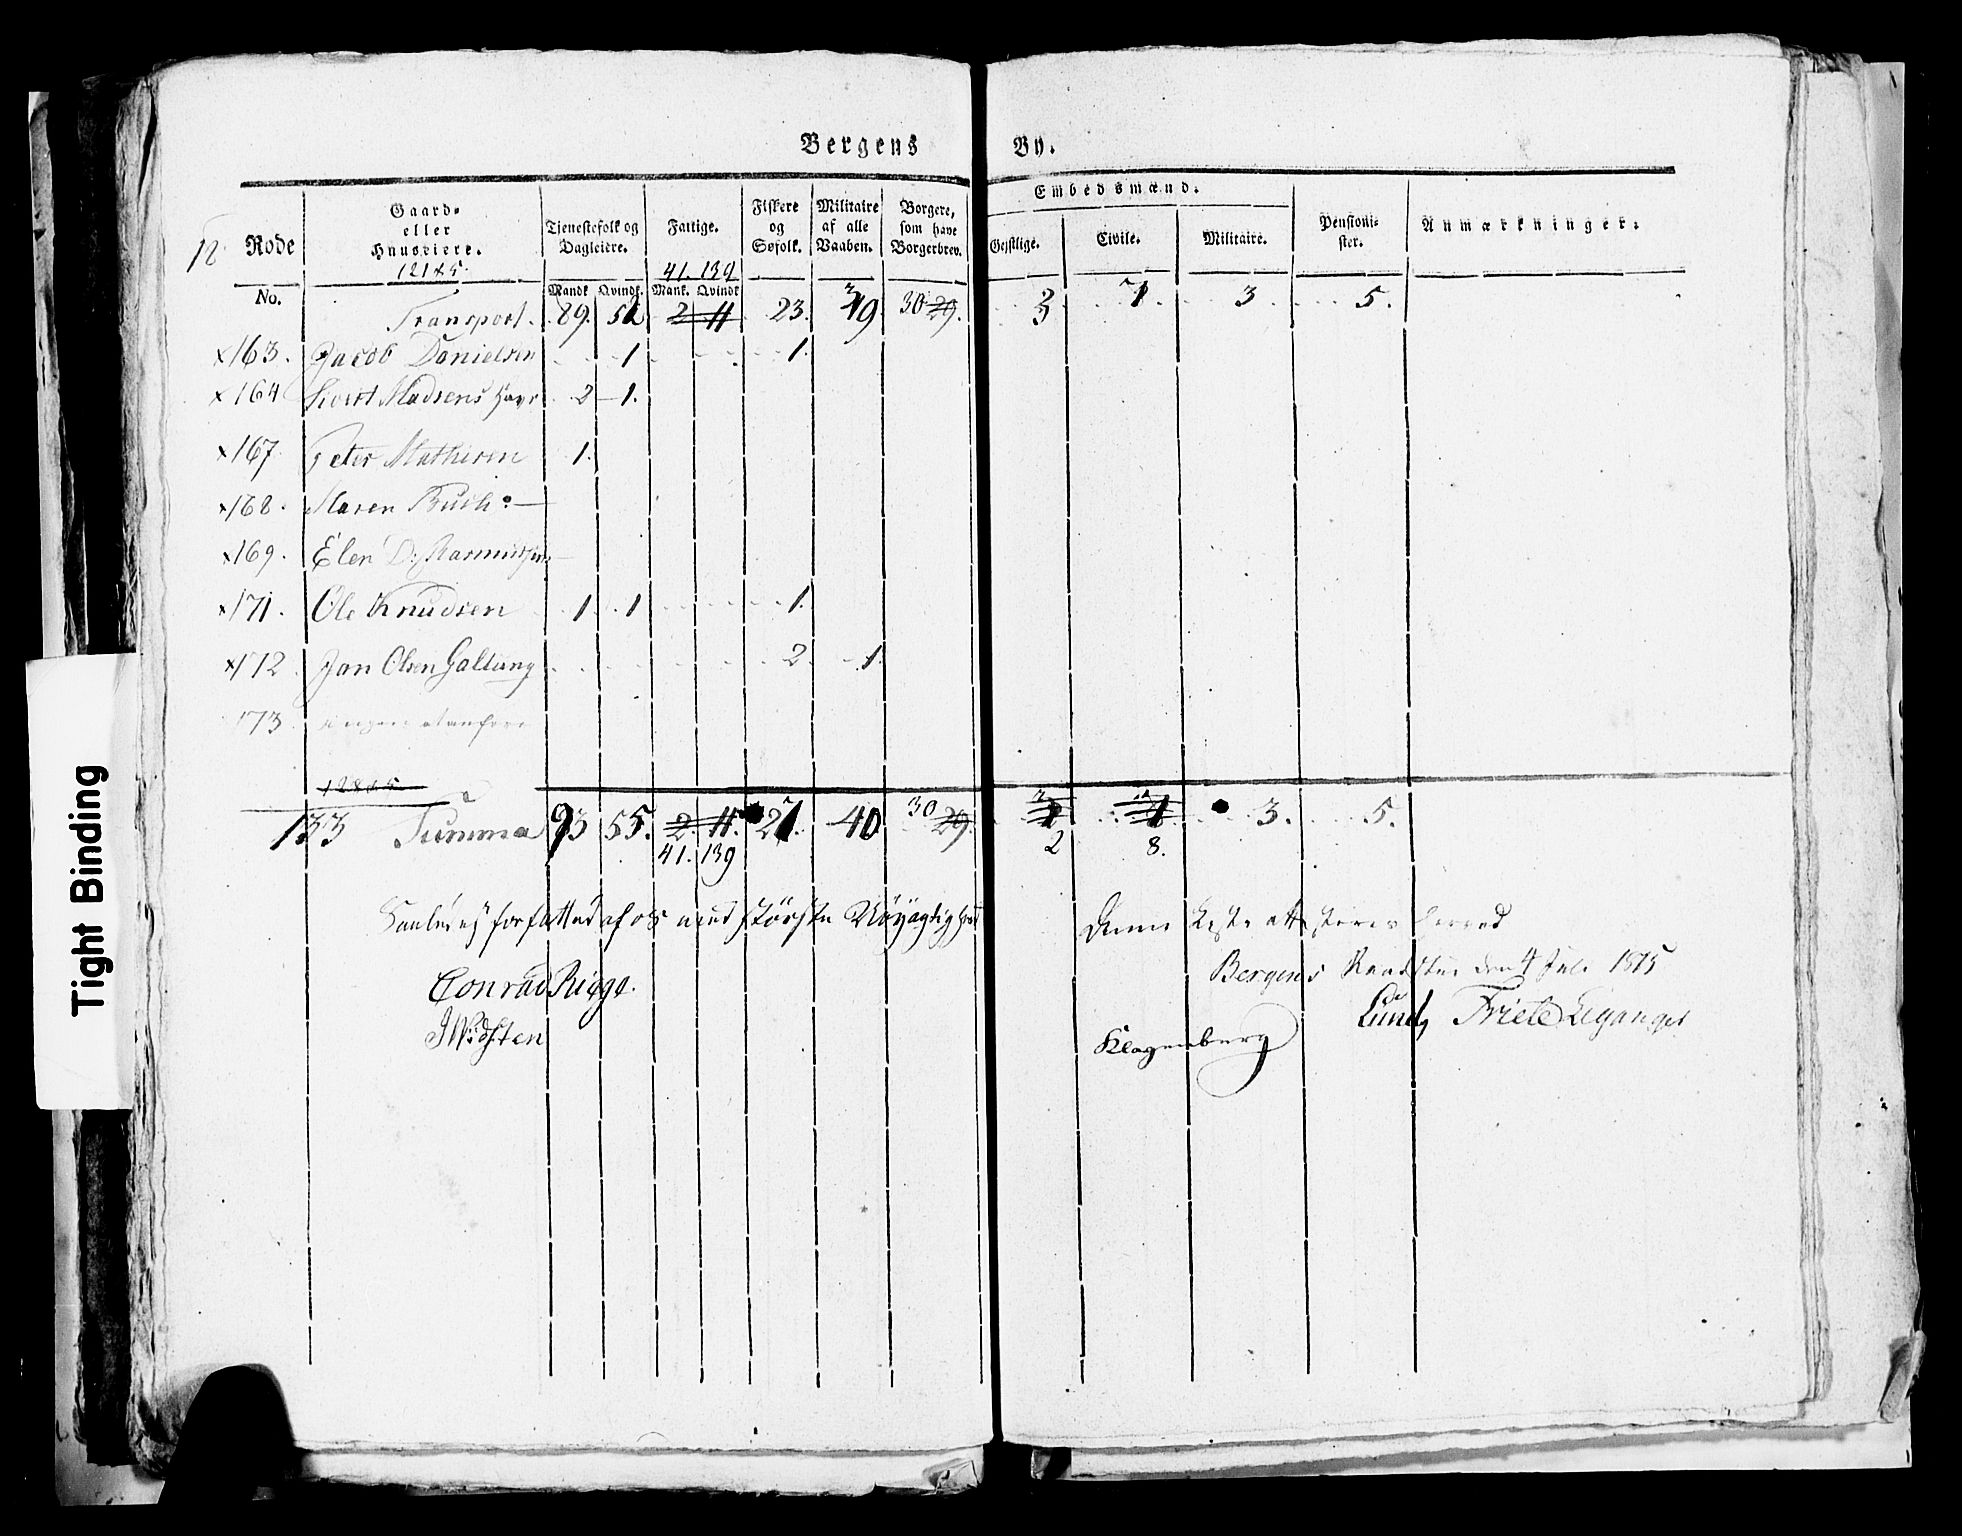 Bergens By.
12. Rode
No.
Gaard-
eller
Huuseiere.
Tjenestefolk og
Dagleiere.
Mandk Qvindk
Fattige.
41. 139
Mank. Qvindk
Fiskere
og
Søfolk.
Militaire
af alle
Vaaben.
Borgere,
som have
Borgerbrev.
Embedsmænd.
Gejstlige.
Civile.
Militaire.
Pensioni-
ster.
Anmærkninger.
Transport. 89. 52 2 11 23. 39 30 29. 3. 5.
x163. Jacob Danielsen 1 1.
x164 Kort Madsens 2 1.
x167. Peter Mathisen 1.
x168. Maren Busch
x169. Elen D: Rasmussen
x171. Ole Knudsen 1 1 1.
x172. Jan Olsen Galtung 2. 1.
173.
133 Summa 93 55. 2. 11. 27. 40 30 29. 3. 5.
41. 139 2 8.
Saaledes forfattet af os med største Nøyagtighed
Conrad Rigge.
J Widsten
Denne Liste attesteres herved
Bergens Raadstue den 4 Juli 1815
Klagenberg
Lund Friele Leganger
Tight Binding